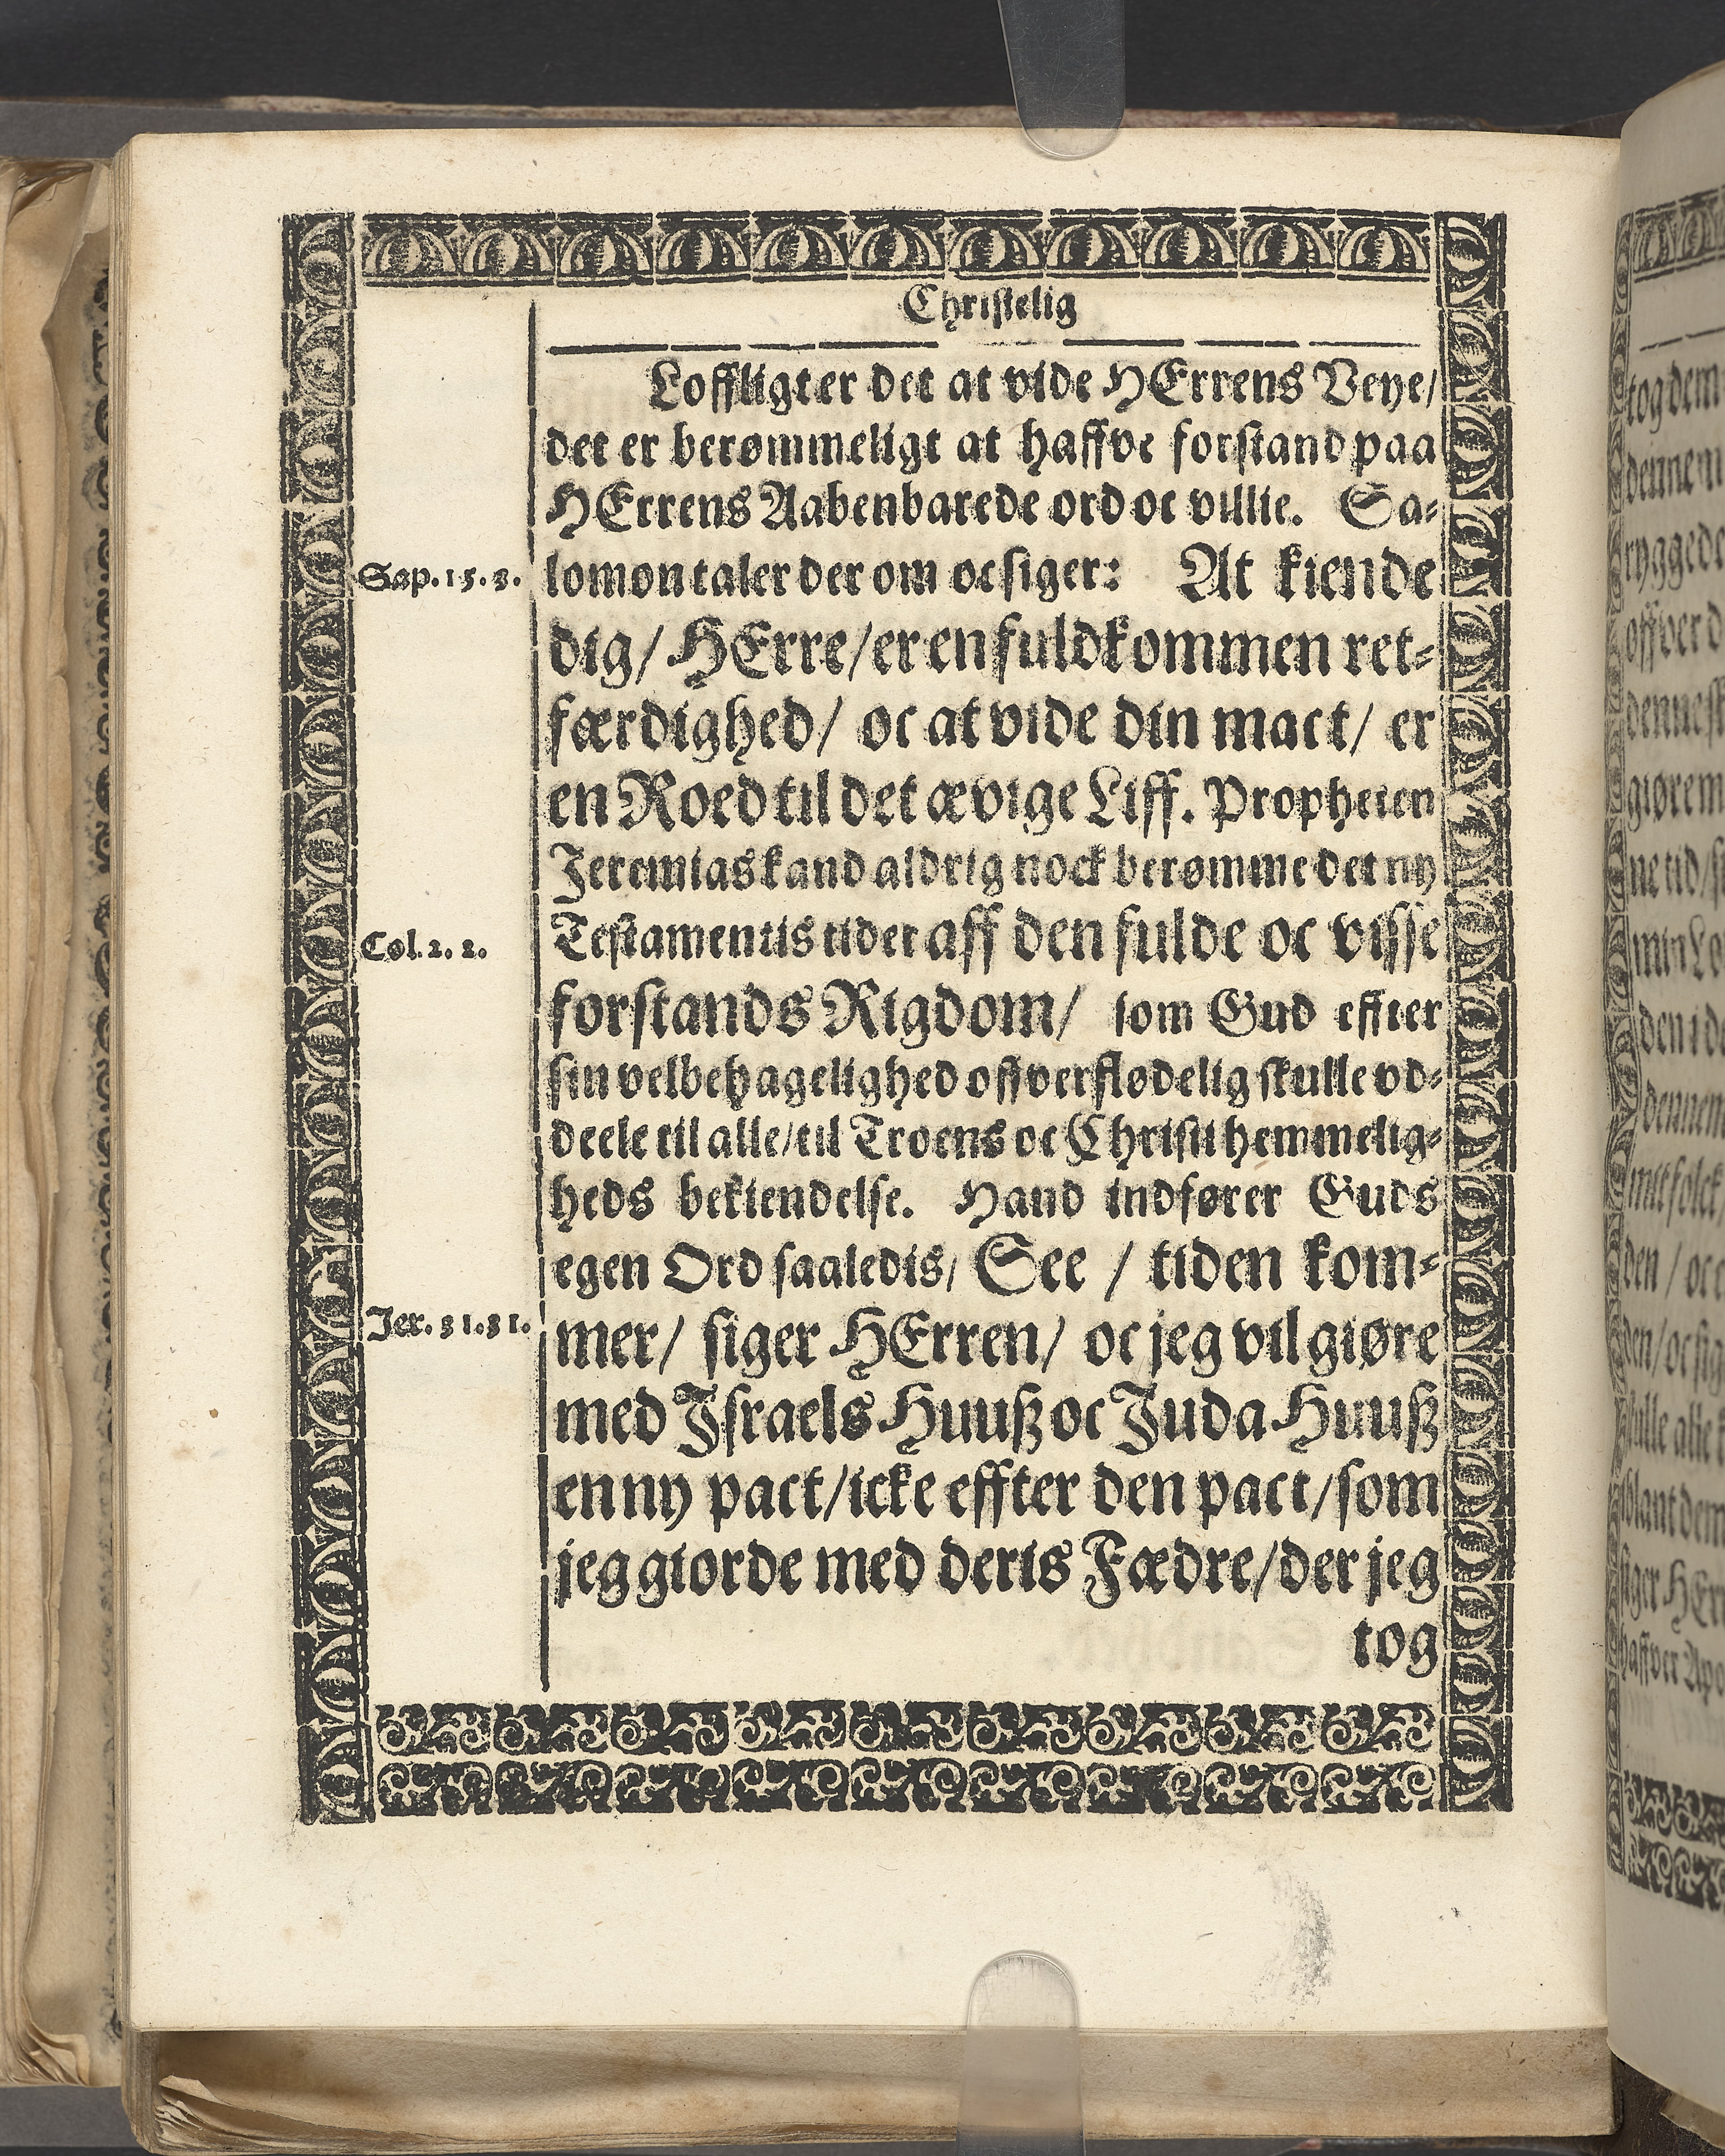 Christelig
Loffligt er det at vide HErrens Veye/
det er berømmeligt at haffve forstand paa
HErrens Aabenbarede ord oc villie. Sa-
Sap. 15. 3.
lomon taler der om oc siger: At kiende
dig/ HErre/ er en fuldkommen ret-
færdighed/ oc at vide din mact/ er
en Roed til det ævige Liff. Propheten
Jeremias kand aldrig nock berømme det ny
Col. 2. 2.
Testamentis tider aff den fulde oc visse
forstands Rigdom/ som Gud effter
sin velbehagelighed offverflødelig skulle vd-
deele til alle/ til Troens oc Christi hemmelig-
heds bekiendelse. Hand indfører Guds
egen Ord saaledis/ See / tiden kom-
Jer. 31. 31.
mer/ siger HErren/ oc jeg vil giøre
med Jsraels Huuß oc Juda Huuß
en ny pact/ icke effter den pact/ som
jeg giorde med deris Fædre/ der jeg
tog